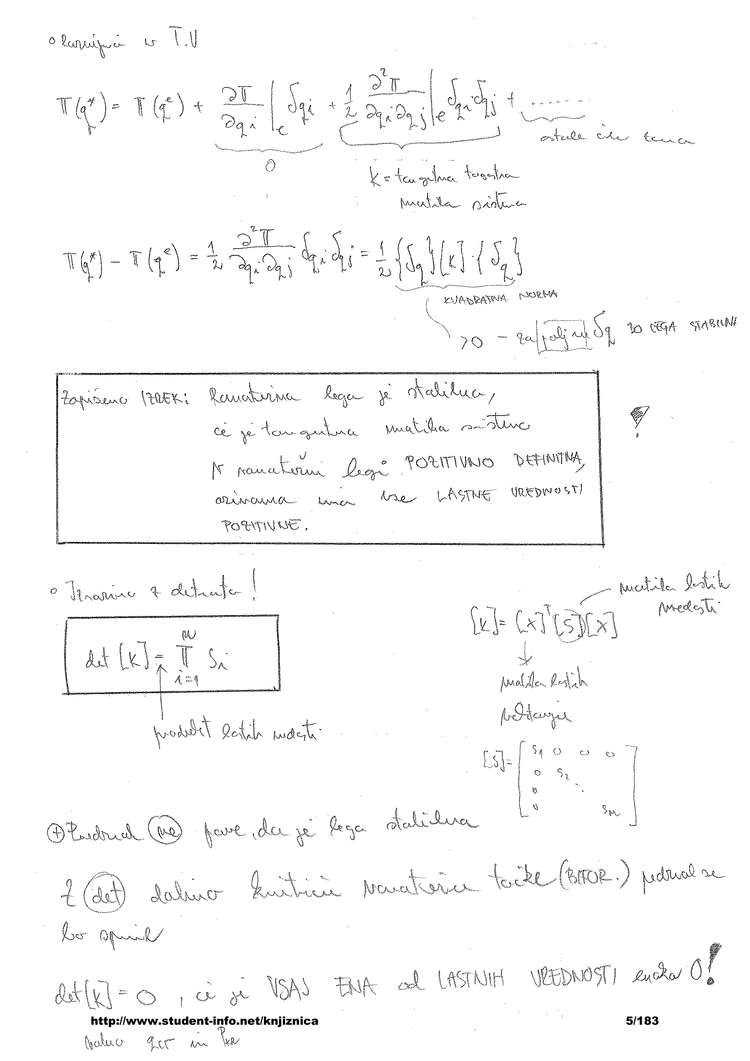 o Razvijmo v T.V
Π(q*) = Π(qᵉ) + ∂Π/∂qi |e δqi + 1/2 ∂²Π/∂qi∂qj |e δqi δqj + .......
0
ostale člene
K = tangentna togostna
matrika sistema
Π(q*) − Π(qᵉ) = 1/2 ∂²Π/∂qi∂qj δqi δqj = 1/2 {δq}[K]·{δq}
KVADRATNA NORMA
>0 – za poljuben δq JO LEGA STABILNA
Zapišemo IZREK: Ravnotežna lega je stabilna,
če je tangentna matrika sistema
v ravnotežni legi POZITIVNO DEFINITNA,
oziroma ima vse LASTNE VREDNOSTI
POZITIVNE.
!
o z determinanto!
matrika lastnih
vrednosti
[K] = [X]ᵀ[S][X]
det [K] = Π i=1 Si
matrika lastnih
vektorjev
produkt lastnih vrednosti
[S] = [ S1 0 0 0
0 S2 .
0 .
0 Sm ]
⊕ Predznak ne pove, da je lega stabilna
Z det dobimo kritične ravnotežne točke (BIFUR.) predznak se
bo spremenil
det[K] = 0, če je VSAJ ENA od LASTNIH VREDNOSTI enaka 0!
http://www.student-info.net/knjiznica 5/183
dobimo qcr in Pkr